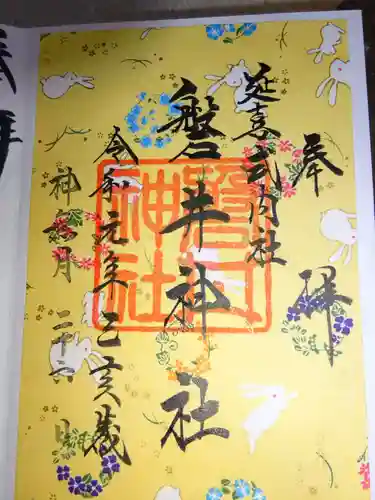 奉拝
延喜式内社
磐井神社
磐井
神社
令和元年己亥歳
神無月二十六日